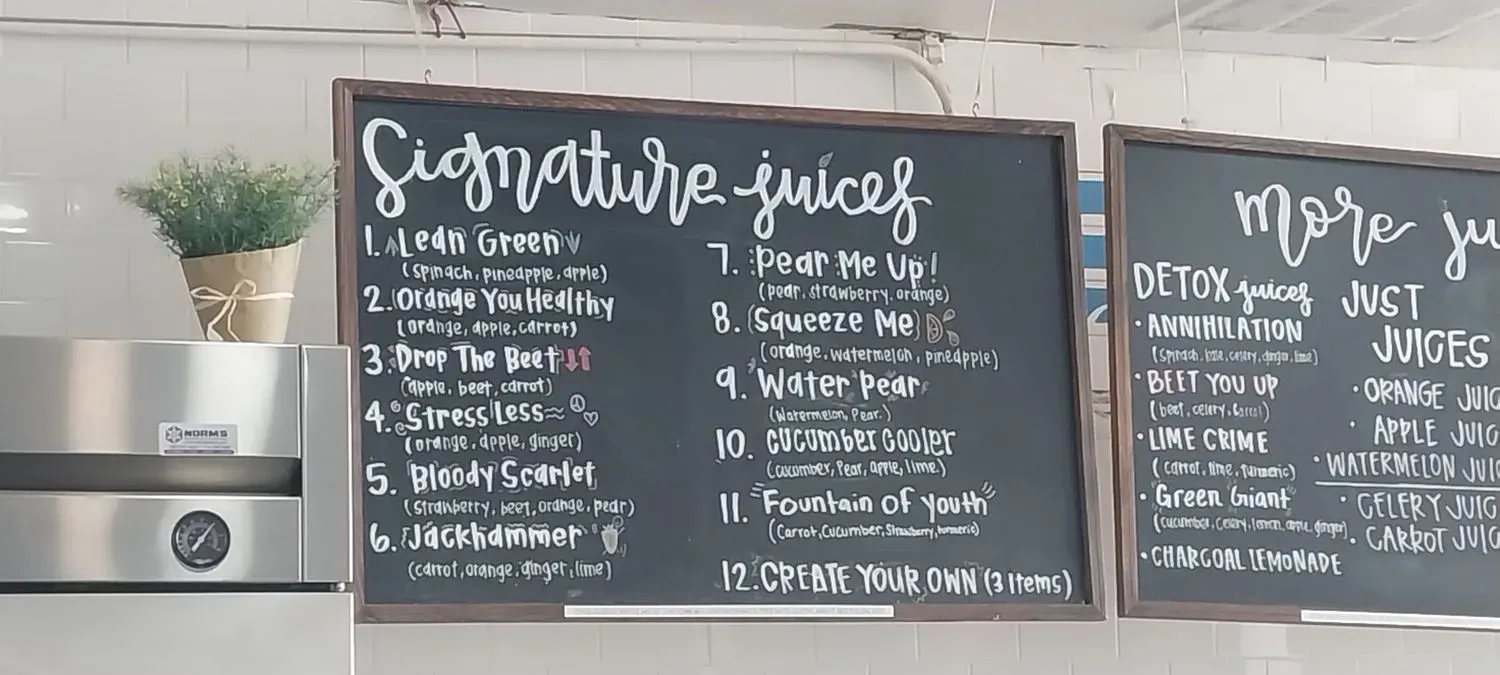 Signature juices
1. Lean Green
(spinach, pineapple, apple)
2. Orange You Healthy
(orange, apple, carrot)
3. Drop The Beet
(apple, beet, carrot)
4. Stress Less
(orange, apple, ginger)
5. Bloody Scarlet
(strawberry, beet, orange, pear)
6. Jackhammer
(carrot, orange, ginger, lime)
7. Pear Me Up!
(pear, strawberry, orange)
8. (Squeeze Me)
(orange, watermelon, pineapple)
9. Water Pear
(Watermelon, Pear.)
10. CUCUMBER COOLER
(cucumber, Pear, apple, lime.)
11. "Fountain OF Youth"
(Carrot, Cucumber, Strawberry, turmeric)
12. CREATE YOUR OWN (3 Items)
More ju
DETOX juices
• ANNIHILATION
(Spinach, kale, celery, ginger, lime)
• BEET YOU UP
(beet, celery, carrot)
• LIME CRIME
(carrot, lime, turmeric)
• Green Giant
(cucumber, Celery, lemon, apple, ginger)
• CHARCOAL LEMONADE
JUST
JUICES
• ORANGE JUIC
• APPLE JUIC
• WATERMELON JUIC
• CELERY JUIC
• CARROT JUIC
NORMS